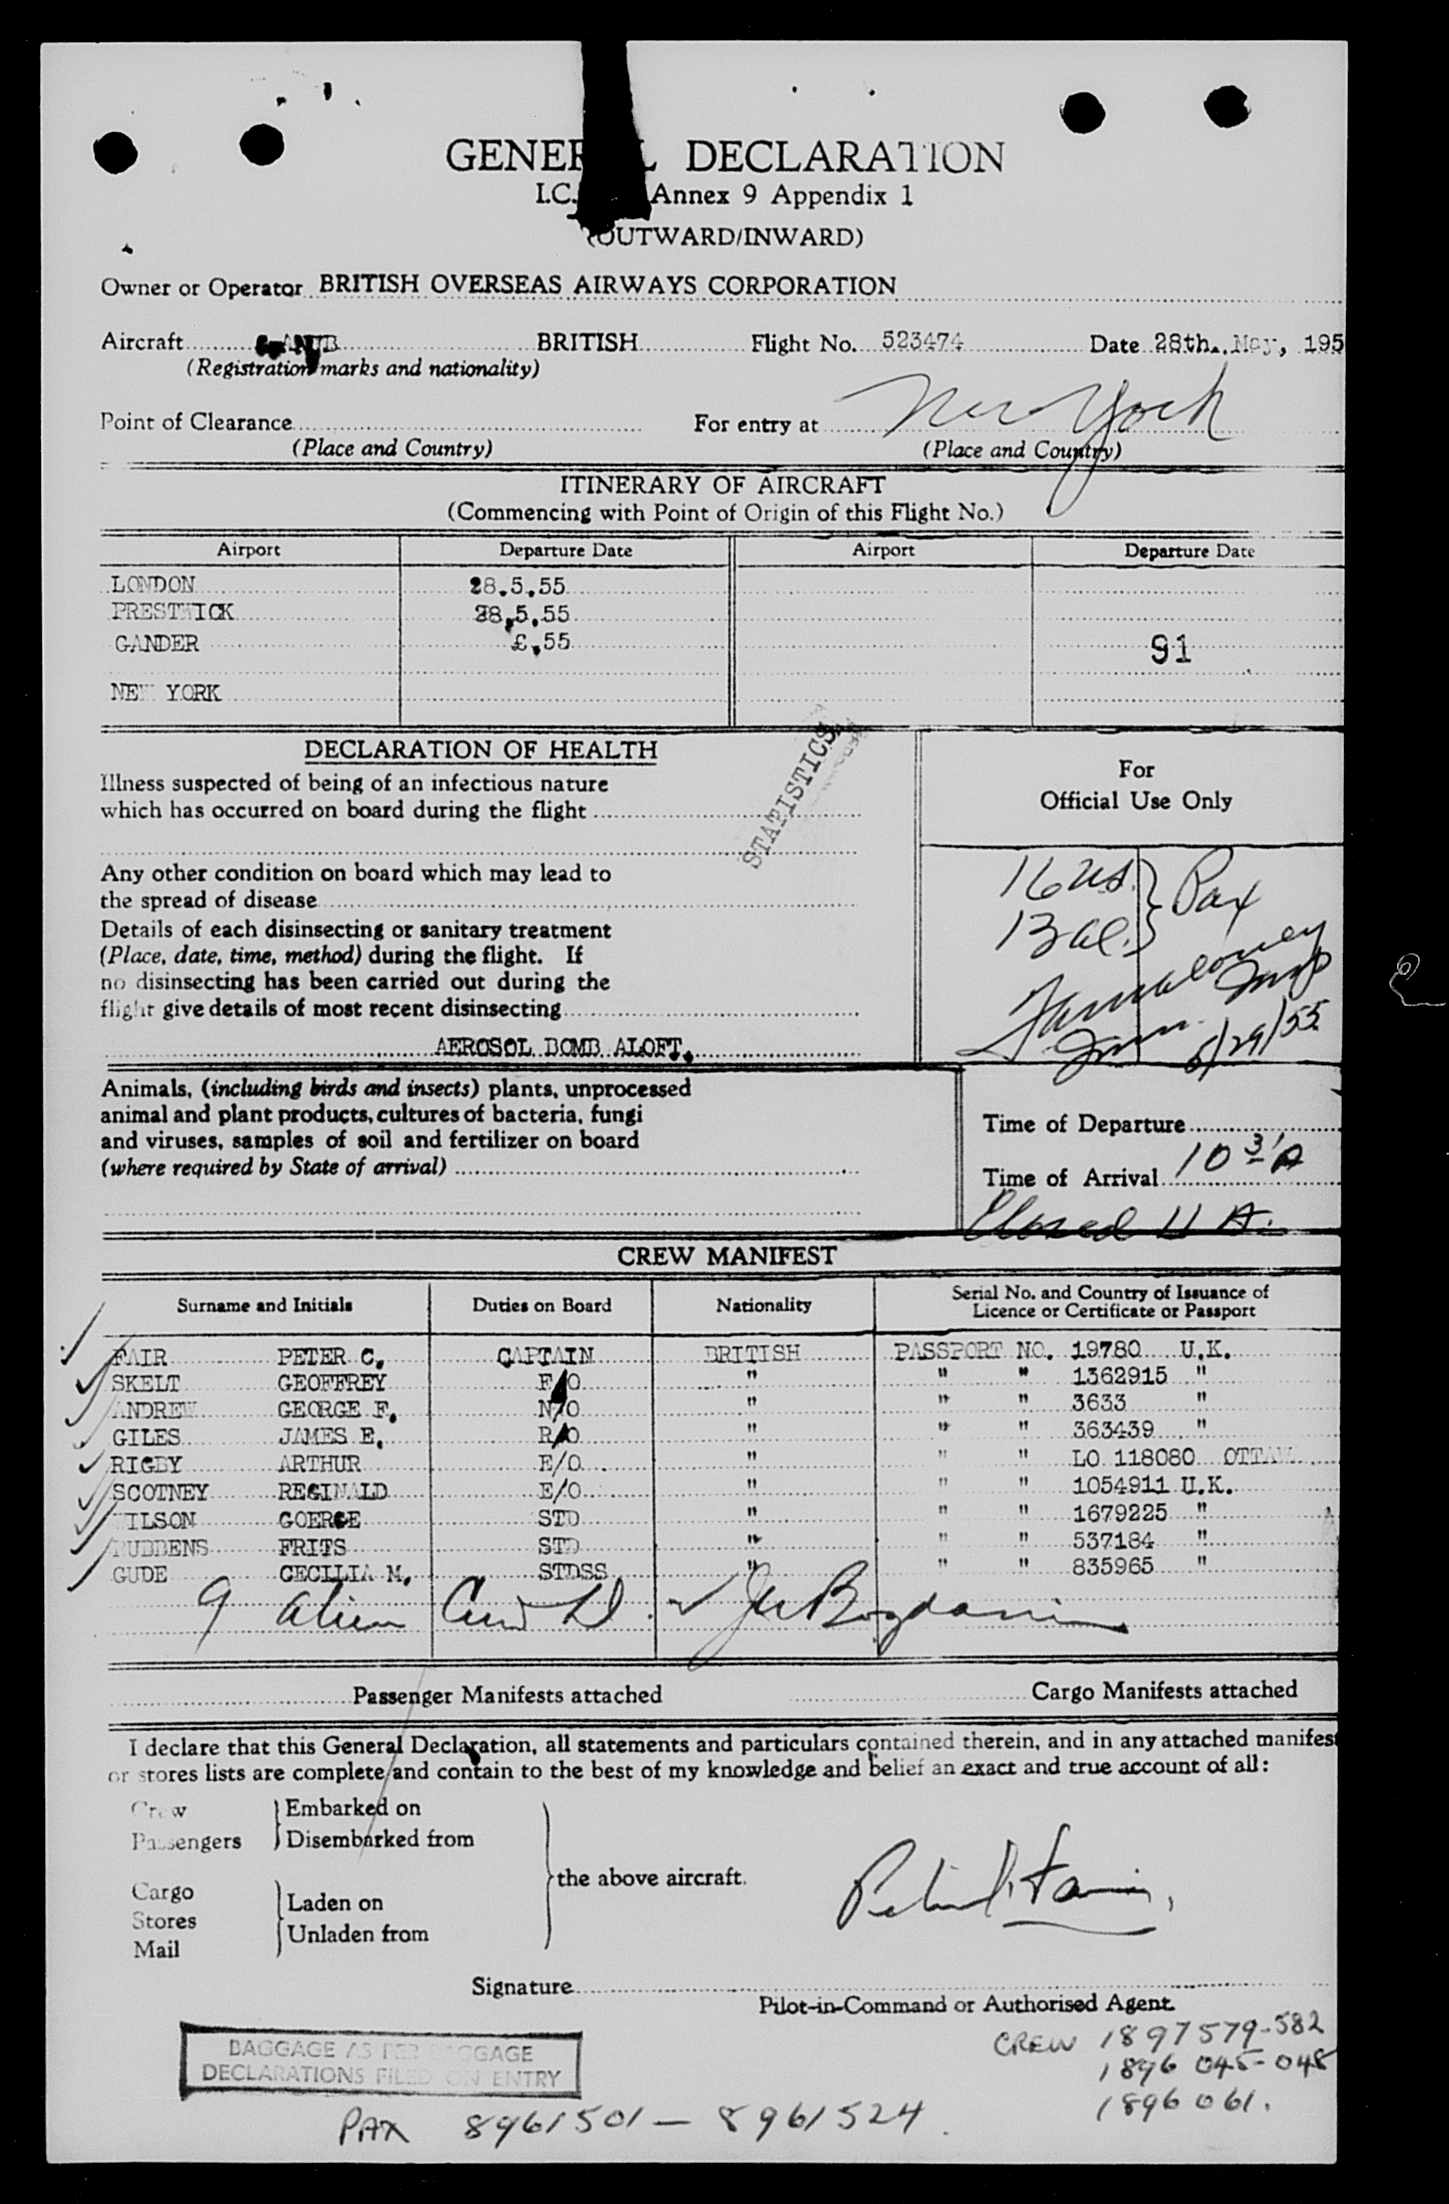 GENERAL DECLARATION
I.C. Annex 9 Appendix 1
(OUTWARD/INWARD)
Owner or Operator BRITISH OVERSEAS AIRWAYS CORPORATION
Aircraft BRITISH Flight No. 523474 Date 28th. May, 195
(Registration marks and nationality)
Point of Clearance For entry at New York
(Place and Country) (Place and Country)
ITINERARY OF AIRCRAFT
(Commencing with Point of Origin of this Flight No.)
Airport Departure Date Airport Departure Date
LONDON 28.5.55
PRESTWICK 28.5.55
GANDER £.55 91
NEW YORK
STATISTICS
DECLARATION OF HEALTH
Illness suspected of being of an infectious nature
which has occurred on board during the flight
Any other condition on board which may lead to
the spread of disease
Details of each disinsecting or sanitary treatment
(Place, date, time, method) during the flight. If
no disinsecting has been carried out during the
flight give details of most recent disinsecting
AEROSOL BOMB ALOFT.
For
Official Use Only
16 us. } Pax
13 al.
5/29/55
Animals, (including birds and insects) plants, unprocessed
animal and plant products, cultures of bacteria, fungi
and viruses, samples of soil and fertilizer on board
(where required by State of arrival)
Time of Departure
Time of Arrival 10 31 A
Closed 11 A.
CREW MANIFEST
Surname and Initials Duties on Board Nationality Serial No. and Country of Issuance of
Licence or Certificate or Passport
FAIR PETER C. CAPTAIN BRITISH PASSPORT NO. 19780 U.K.
SKELT GEOFFREY F/O " " " 1362915 "
ANDREW GEORGE F. N/O " " " 3633 "
GILES JAMES E. R/O " " " 363439 "
RIGBY ARTHUR E/O " " " LO 118080 OTTAW
SCOTNEY REGINALD E/O " " " 1054911 U.K.
WILSON GOERGE STD " " " 1679225 "
RUBBENS FRITS STD " " " 537184 "
GUDE CECILIA M. STDSS " " " 835965 "
9 alien Crew
Passenger Manifests attached Cargo Manifests attached
I declare that this General Declaration, all statements and particulars contained therein, and in any attached manifest
or stores lists are complete and contain to the best of my knowledge and belief an exact and true account of all:
Crew } Embarked on
Passengers } Disembarked from
the above aircraft.
Cargo } Laden on
Stores
Mail } Unladen from
Signature
Pilot-in-Command or Authorised Agent.
BAGGAGE AS PER BAGGAGE
DECLARATIONS FILED ON ENTRY
CREW 1897579-582
1896 045-048
1896061.
PAX 8961501 — 8961524.